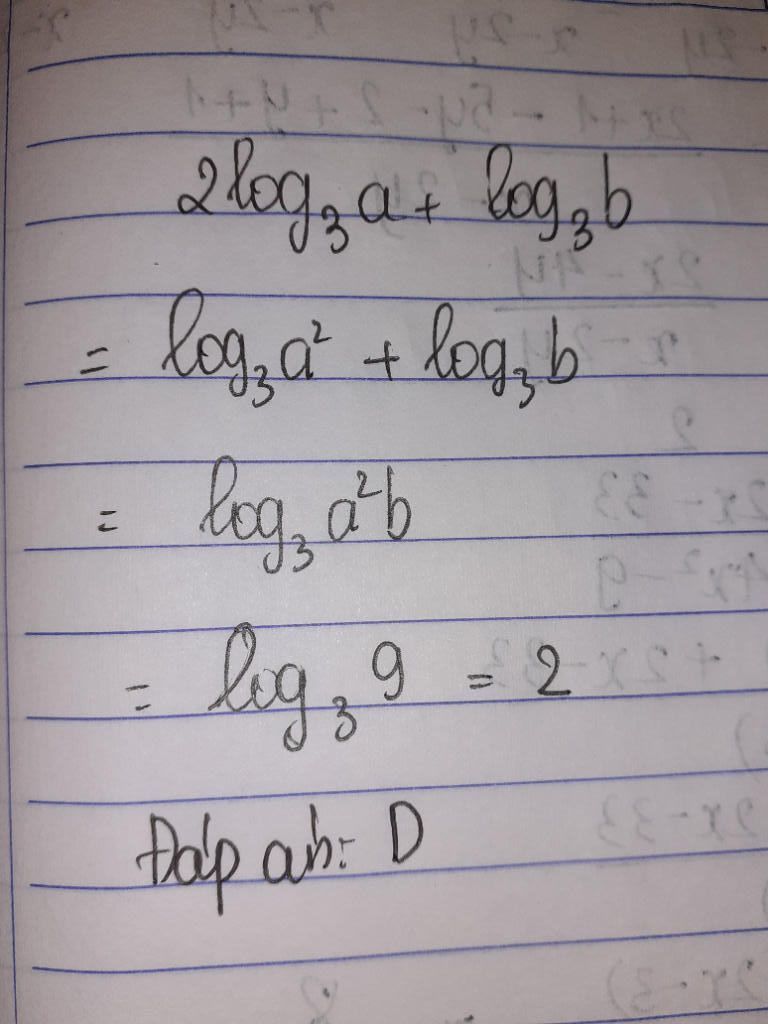 2log₃a + log₃b
= log₃a² + log₃b
= log₃a²b
= log₃9 = 2
Đáp án: D